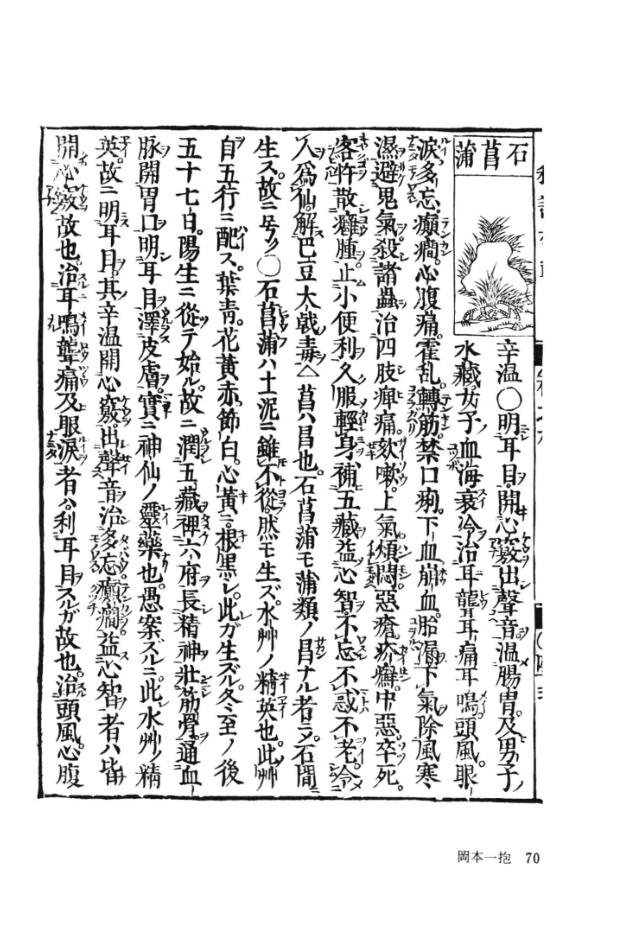 石菖蒲
辛温○明耳目。開心竅出聲音温腸胃。及男子ノ
水藏。女子ノ血海衰冷治耳聾耳痛耳鳴頭風。眼
涙多忘。癲癇。心腹痛。霍乱。轉筋。禁口痢。下血崩血。胎漏。下氣除風寒
濕避鬼氣殺諸蟲治四肢痺痛。欬嗽。上氣。煩悶。惡瘡。疥癬。中惡。卒死。
客忤散癰腫止小便利久服輕身補五藏益心智不忘不惑不老。令
人爲仙。解巴豆大戟毒△菖ハ昌也。石菖蒲モ蒲類ノ昌ナル者ニ乄。石間ニ
生ス。故ニ号ク○石菖蒲ハ土泥ニ雖不從。然モ生ズ。水艸ノ精英也。此艸
自五行ニ配ス。葉青。花黄赤。節白。心黄ニ。根黒シ。此ガ生ズル冬至ノ後
五十七日。陽生ニ從テ始ル。故ニ潤五藏裨六府長精神壯筋骨通血
脉開胃口明耳目澤皮膚。實ニ神仙ノ靈藥也。愚案スルニ此水艸ノ精
英。故ニ明耳目。其辛温開心竅。出聲音治多忘癲癇益心智者ハ皆
開心竅故也。治耳鳴聾痛及眼涙者ハ。利耳目スルガ故也。治頭風。心腹
岡本一抱 70